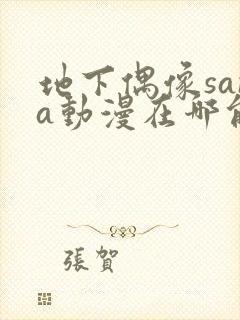 地下偶像sa
a動漫在哪
張賀